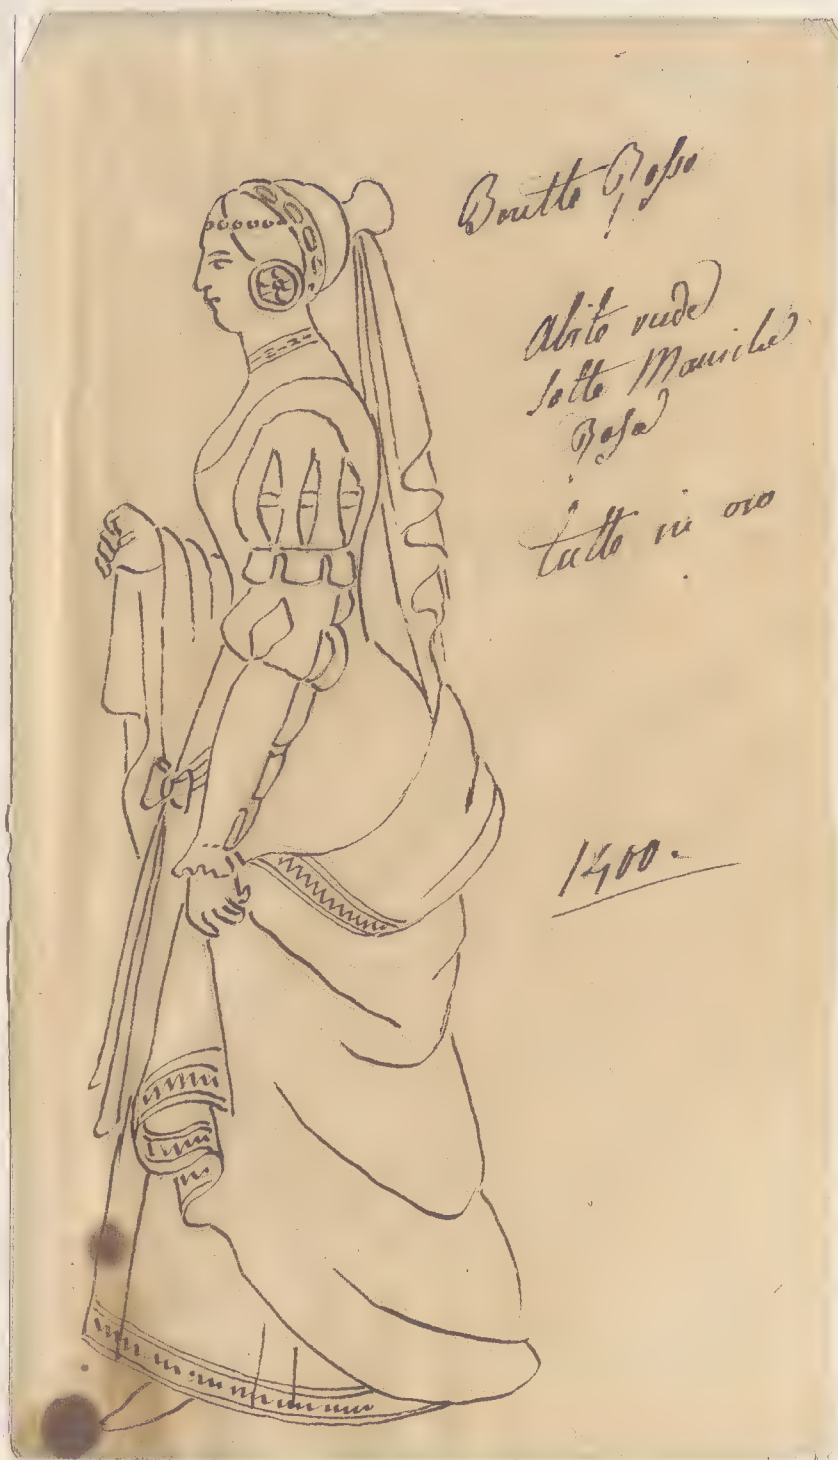 Rosso
Abito verde
sotto Maniche
Rosa
tutto in oro
1400.